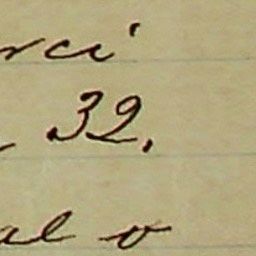 rci
32.
al o